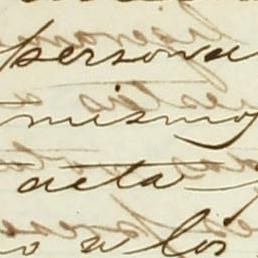 persona
mismo
acta
o a los